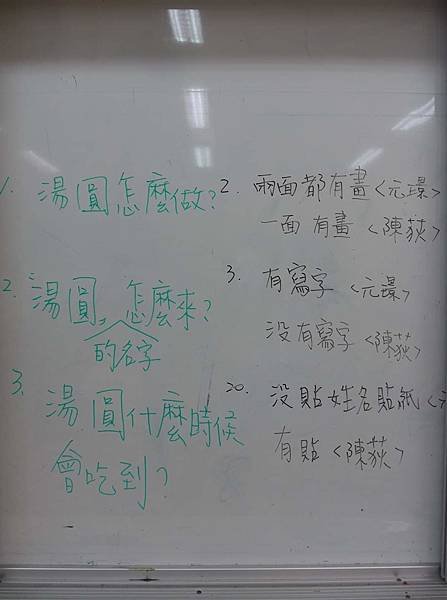 1. 湯圓怎麼做?
2. 湯圓, 怎麼來?
的名字
3. 湯圓什麼時候
會吃到?
2. 兩面都有畫<元璟>
一面 有畫 <陳荻>
3. 有寫字 <元璟>
沒有寫字<陳荻>
20. 沒貼姓名貼紙<元
有貼 <陳荻>